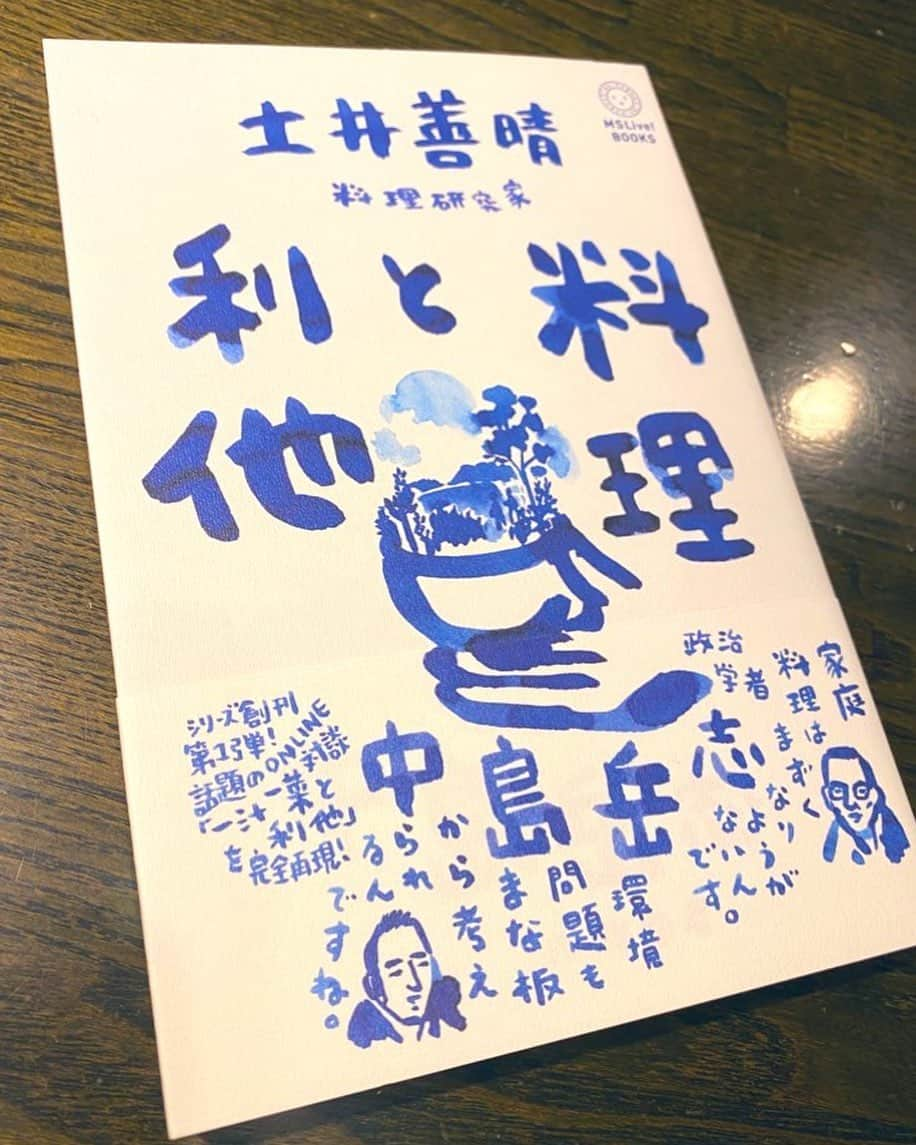 MSLive!
BOOKS
土井善晴
料理研究家
料理
と
利他
政治
学者
中島岳志
家庭
料理はまずく
なりようが
ないんです。
環境
問題も
まな板
から考え
られ
るん
ですね。
シリーズ創刊
第1弾!
話題のONLINE対談
「一汁一菜と
利他」
を完全再現!